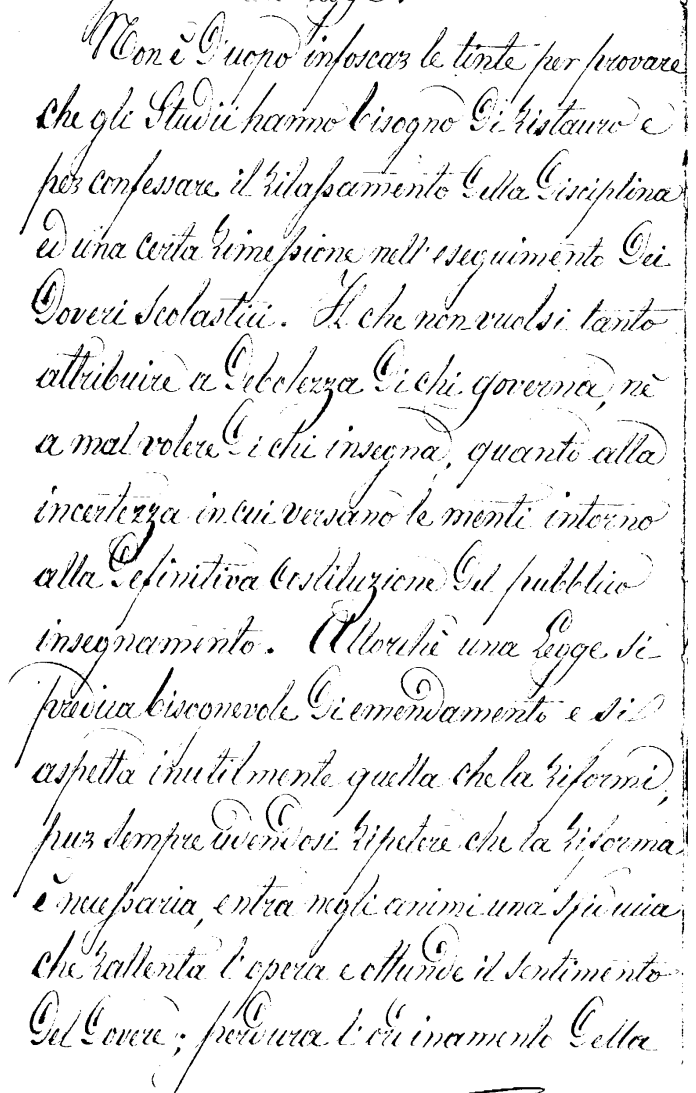 Non è d'uopo infoscar le tinte per provare
che gli Studii hanno bisogno di ristauro e
per confessare il rilassamento della disciplina
ed una certa rimessione nell'eseguimento dei
doveri scolastici. Il che non vuolsi tanto
attribuire a debolezza di chi governa, nè
a mal volere di chi insegna, quanto alla
incertezza in cui versano le menti intorno
alla definitiva costituzione del pubblico
insegnamento. Allorchè una Legge si
predica bisognevole di emendamento e si
aspetta inutilmente quella che la riformi,
pur sempre udendosi ripetere che la riforma
è necessaria, entra negli animi una sfiducia
che rallenta l'opera e ottunde il sentimento
del dovere; perdura l'ordinamento della